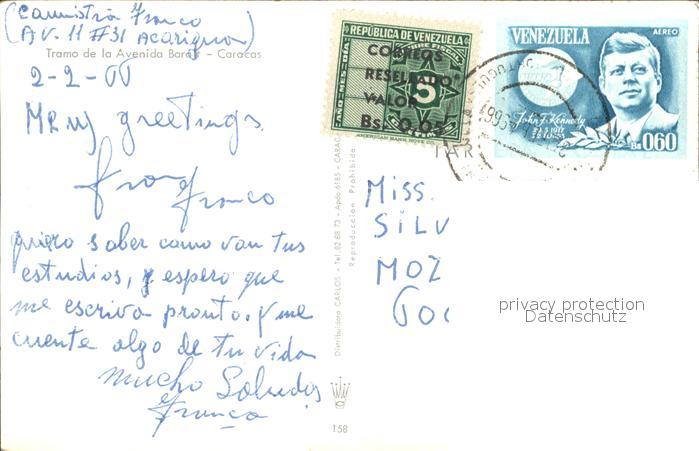 Franco
(AV. 11 #31 Acarigua)
Tramo de la Avenida Baralt - Caracas
2-2-66
Mery greetings
from
Franco
quiero saber como van tus
estudios, y espero que
me escriva pronto. y me
cuente algo de tu vida
mucho Saludos
Franco
REPUBLICA DE VENEZUELA
CORREOS
RESELLADO
VALOR
5
Bs. 0.05
AÑO-MES-DIA
AMERICAN BANK NOTE CO.
VENEZUELA
AEREO
John F. Kennedy
29.5.1917
22.11.1963
Bs 0.60
Distribuidora CARLOS - Tel. 82 68 73 - Apdo. 6185 - CARACAS
Reproduccion Prohibida
158
Miss.
SILV
MOZ
privacy protection
Datenschutz